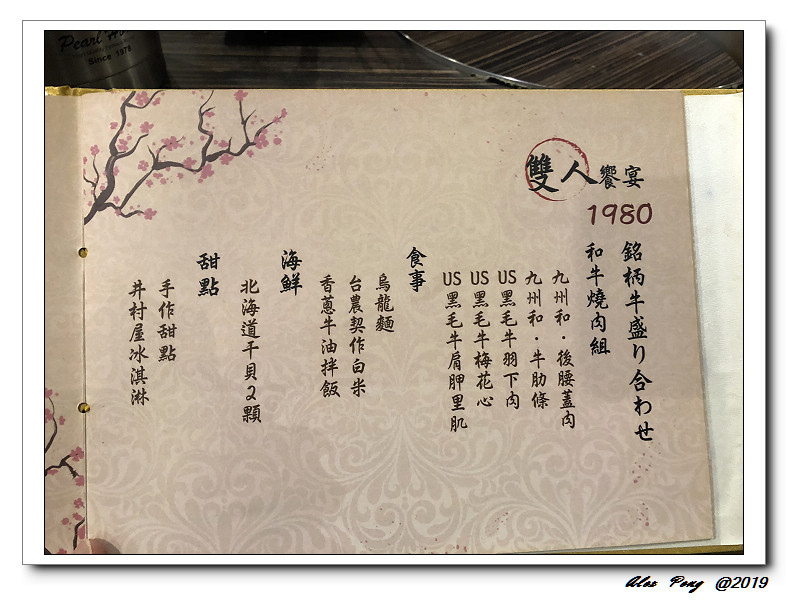 Pearl H
Since 1978
雙人饗宴
1980
銘柄牛盛り合わせ
和牛燒肉組
九州和‧後腰蓋肉
九州和‧牛肋條
US黑毛牛羽下肉
US黑毛牛梅花心
US黑毛牛肩胛里肌
食事
烏龍麵
台農契作白米
香蔥牛油拌飯
海鮮
北海道干貝2顆
甜點
手作甜點
井村屋冰淇淋
Alex Peng @2019